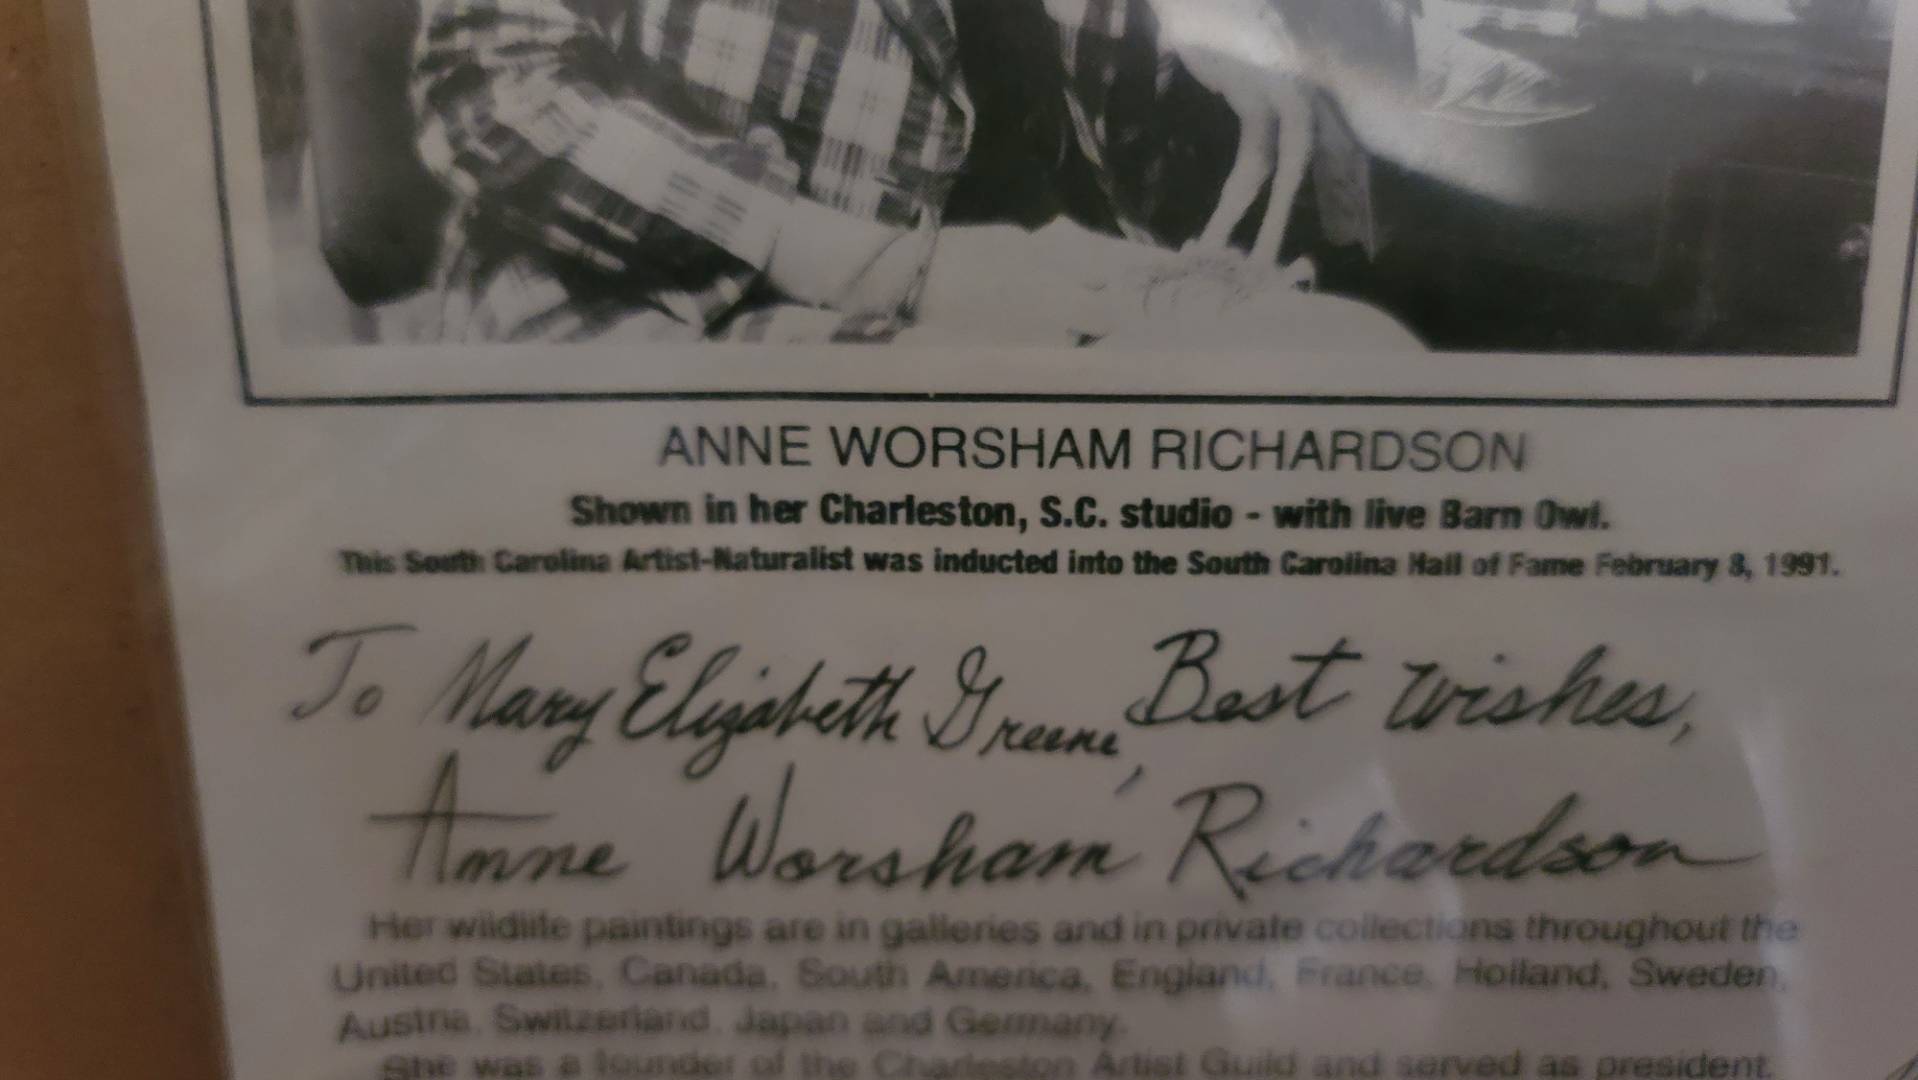 ANNE WORSHAM RICHARDSON
Shown in her Charleston, S.C. studio - with live Barn Owl.
This South Carolina Artist-Naturalist was inducted into the South Carolina Hall of Fame February 8, 1991.
To Mary Elizabeth Greene, Best wishes,
Anne Worsham Richardson
Her wildlife paintings are in galleries and in private collections throughout the
United States, Canada, South America, England, France, Holland, Sweden,
Austria, Switzerland, Japan and Germany.
She was a founder of the Charleston Artist Guild and served as president,